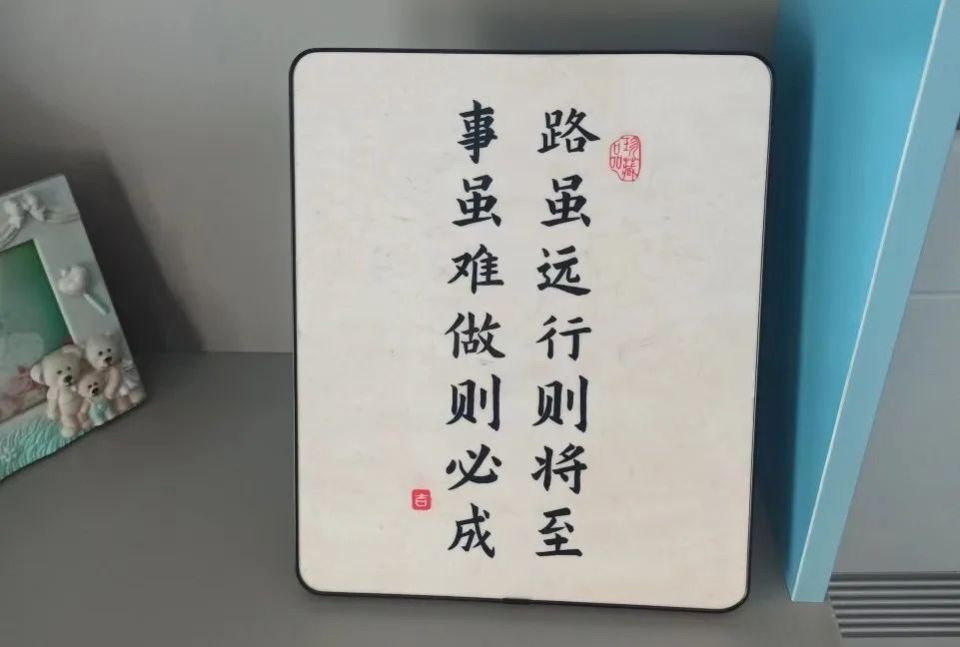 路虽远行则将至
事虽难做则必成
珍藏品
吉